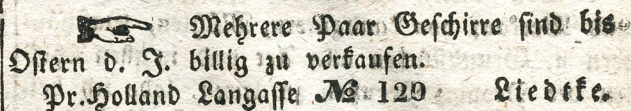 ☞ Mehrere Paar Geschirre sind bis
Ostern d. J. billig zu verkaufen.
Pr. Holland Langasse № 129 Liedtke.